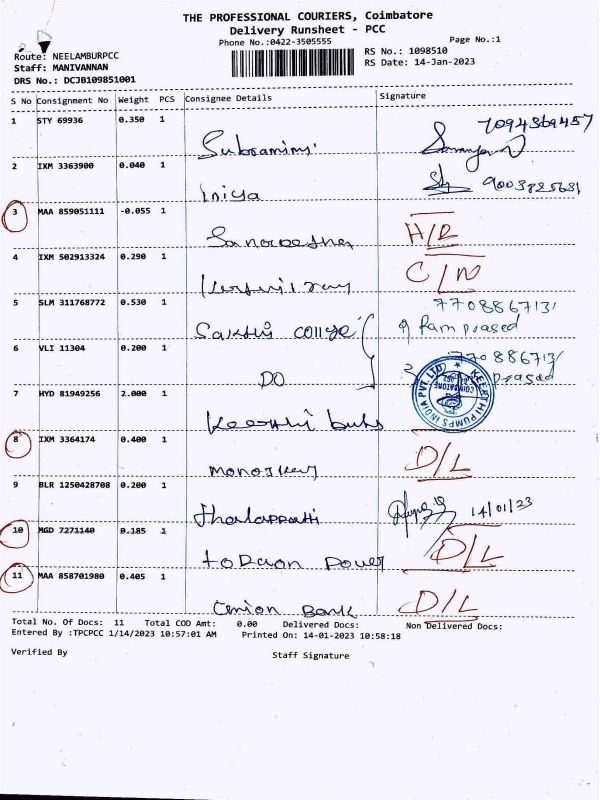 THE PROFESSIONAL COURIERS, Coimbatore
Delivery Runsheet - PCC
Phone No.:0422-3505555
Page No.:1
Route: NEELAMBURPCC
RS No.: 1098510
Staff: MANIVANNAN
RS Date: 14-Jan-2023
DRS No.: DCJB109851001
S No Consignment No Weight PCS Consignee Details Signature
1 STY 69936 0.350 1
7094369457
2 IXM 3363900 0.040 1
Iniya 9003825681
3 MAA 859051111 -0.055 1
H/R
4 IXM 502913324 0.290 1
C/N
5 SLM 311768772 0.530 1
770886713
Sakthi college Ram prasad
6 VLI 11304 0.200 1
770886713
DO prasad
KEERTHI PUMPS INDIA PVT. LTD
COIMBATORE
7 HYD 81949256 2.000 1
Keerthi
8 IXM 3364174 0.400 1
D/L
9 BLR 1250428708 0.200 1
14/01/23
10 MGD 7271140 0.185 1
Power D/L
11 MAA 858701980 0.405 1
Union Bank D/L
Total No. Of Docs: 11 Total COD Amt: 0.00 Delivered Docs: Non Delivered Docs:
Entered By :TPCPCC 1/14/2023 10:57:01 AM Printed On: 14-01-2023 10:58:18
Verified By Staff Signature